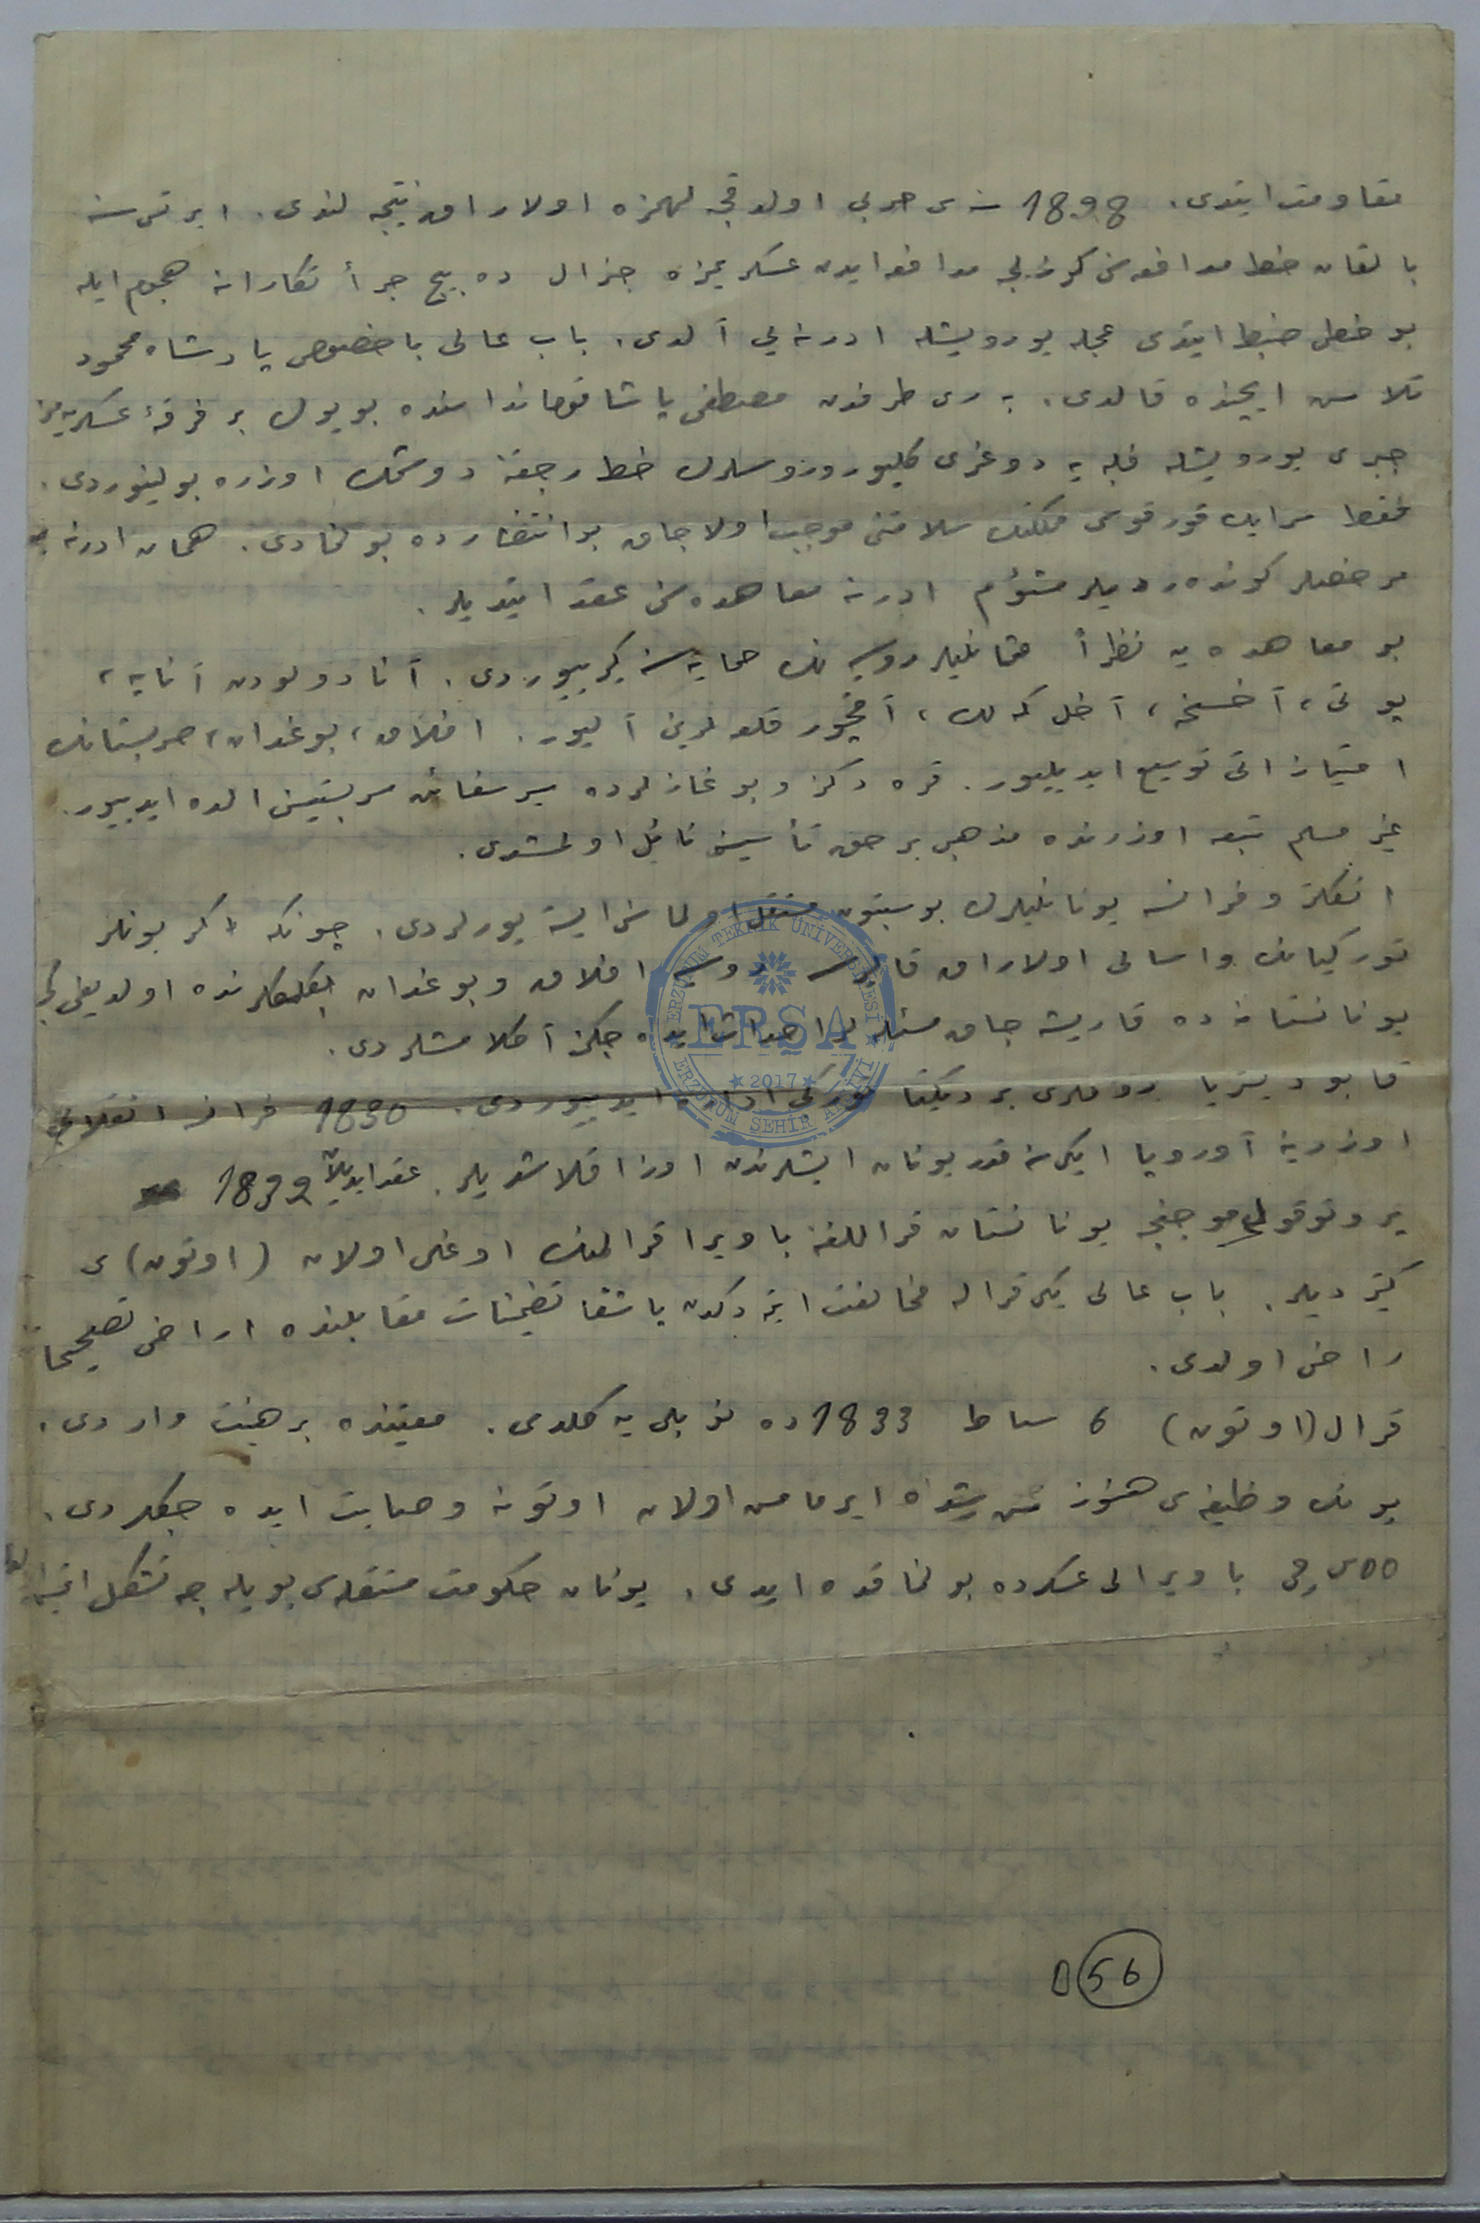 مقاومت ایتدی. 1898 سنه‌سی حربی اولدقجه لهمزه اولاراق نتیجه لندی. ایرتسی سنه
بالقان خط مدافعه‌سنی کوزلجه مدافعه ایدن عسکریمزه جنرال ده بیچ جرأتکارانه هجوم ایله
بو خطی ضبط ایتدی عجله یورویشله ادرنه یی آلدی. باب عالی باخصوص پادشاه محمود
تلاش ایچنده قالدی. بری طرفدن مصطفی پاشا قوماندا سنده بویوک بر فرقهٔ عسکریه‌مز
جبری یورویشله فلبه یه دوغری کلیور و روسلرك خط رجعتنه دوشمك اوزره بولنیوردی.
فقط سرایك قورقوسی مملکتك سلامتنی موجب اولاجاق بو انتظارده بولنمادی. همان ادرنه یه
مرخصلر کوندەردیلر مشئوم ادرنه معاهده سنی عقد ایتدیلر.
بو معاهده یه نظراً عثمانلیلر روسیه نك حمایه سنه کیرییوردی. آنادولودن آناپه،
پوتی، آخسخه، آخل كه لك، آقجور قلعه لرینی آلیور. افلاق، بوغدان، صربستانك
امتیازاتی توسیع ایدیلیور. قره دکز و بوغازلرده سیر سفائن سربستیسنی الده ایدییور.
غیر مسلم تبعه اوزرنده مذهبی بر حق تأسیسنه نائل اولمشدی.
انکلتره و فرانسه یونانلیلرك بوسبتون مستقل اولماسنی ایسته یورلردی. چونکه اکر بونلر
تورکیانك واسالی اولاراق قالیرسه روسیه افلاق و بوغدان مملکتلرنده اولدیغی کبی
یونانستانه ده قاریشه جاق مسئله لر احداث ایده جکنی آکلامشلردی.
قابودیستریا روملری بر دیکتاتور کبی اداره ایدییوردی. 1830 فرانسه انقلابی
اوزرینه آوروپا ایکی سنه قدر یونان ایشلرندن اوزاقلاشدیلر. عقد ایدیلن 1832
پروتوقولی موجبنجه یونانستان قراللغنه باویرا قرالنك اوغلی اولان (اوتون) ی
کتیردیلر. باب عالی یکی قراله مخالفت ایتمه دکدن باشقا تضمینات مقابلنده اراضی تصحیحنا
راضی اولدی.
قرال (اوتون) 6 شباط 1833 ده نوپلی یه کلدی. معیتنده بر هیئت واردی.
بونك وظیفه سی هنوز سن رشده ایرمامش اولان اوتونه وصایت ایده جکلردی.
باویرالی عسکرده بولنماقده ایدی. یونان حکومت مستقله سی بویله جه تشکل
56
ERZURUM TEKNİK ÜNİVERSİTESİ
ERŞA
2017
ERZURUM ŞEHİR ARŞİVİ